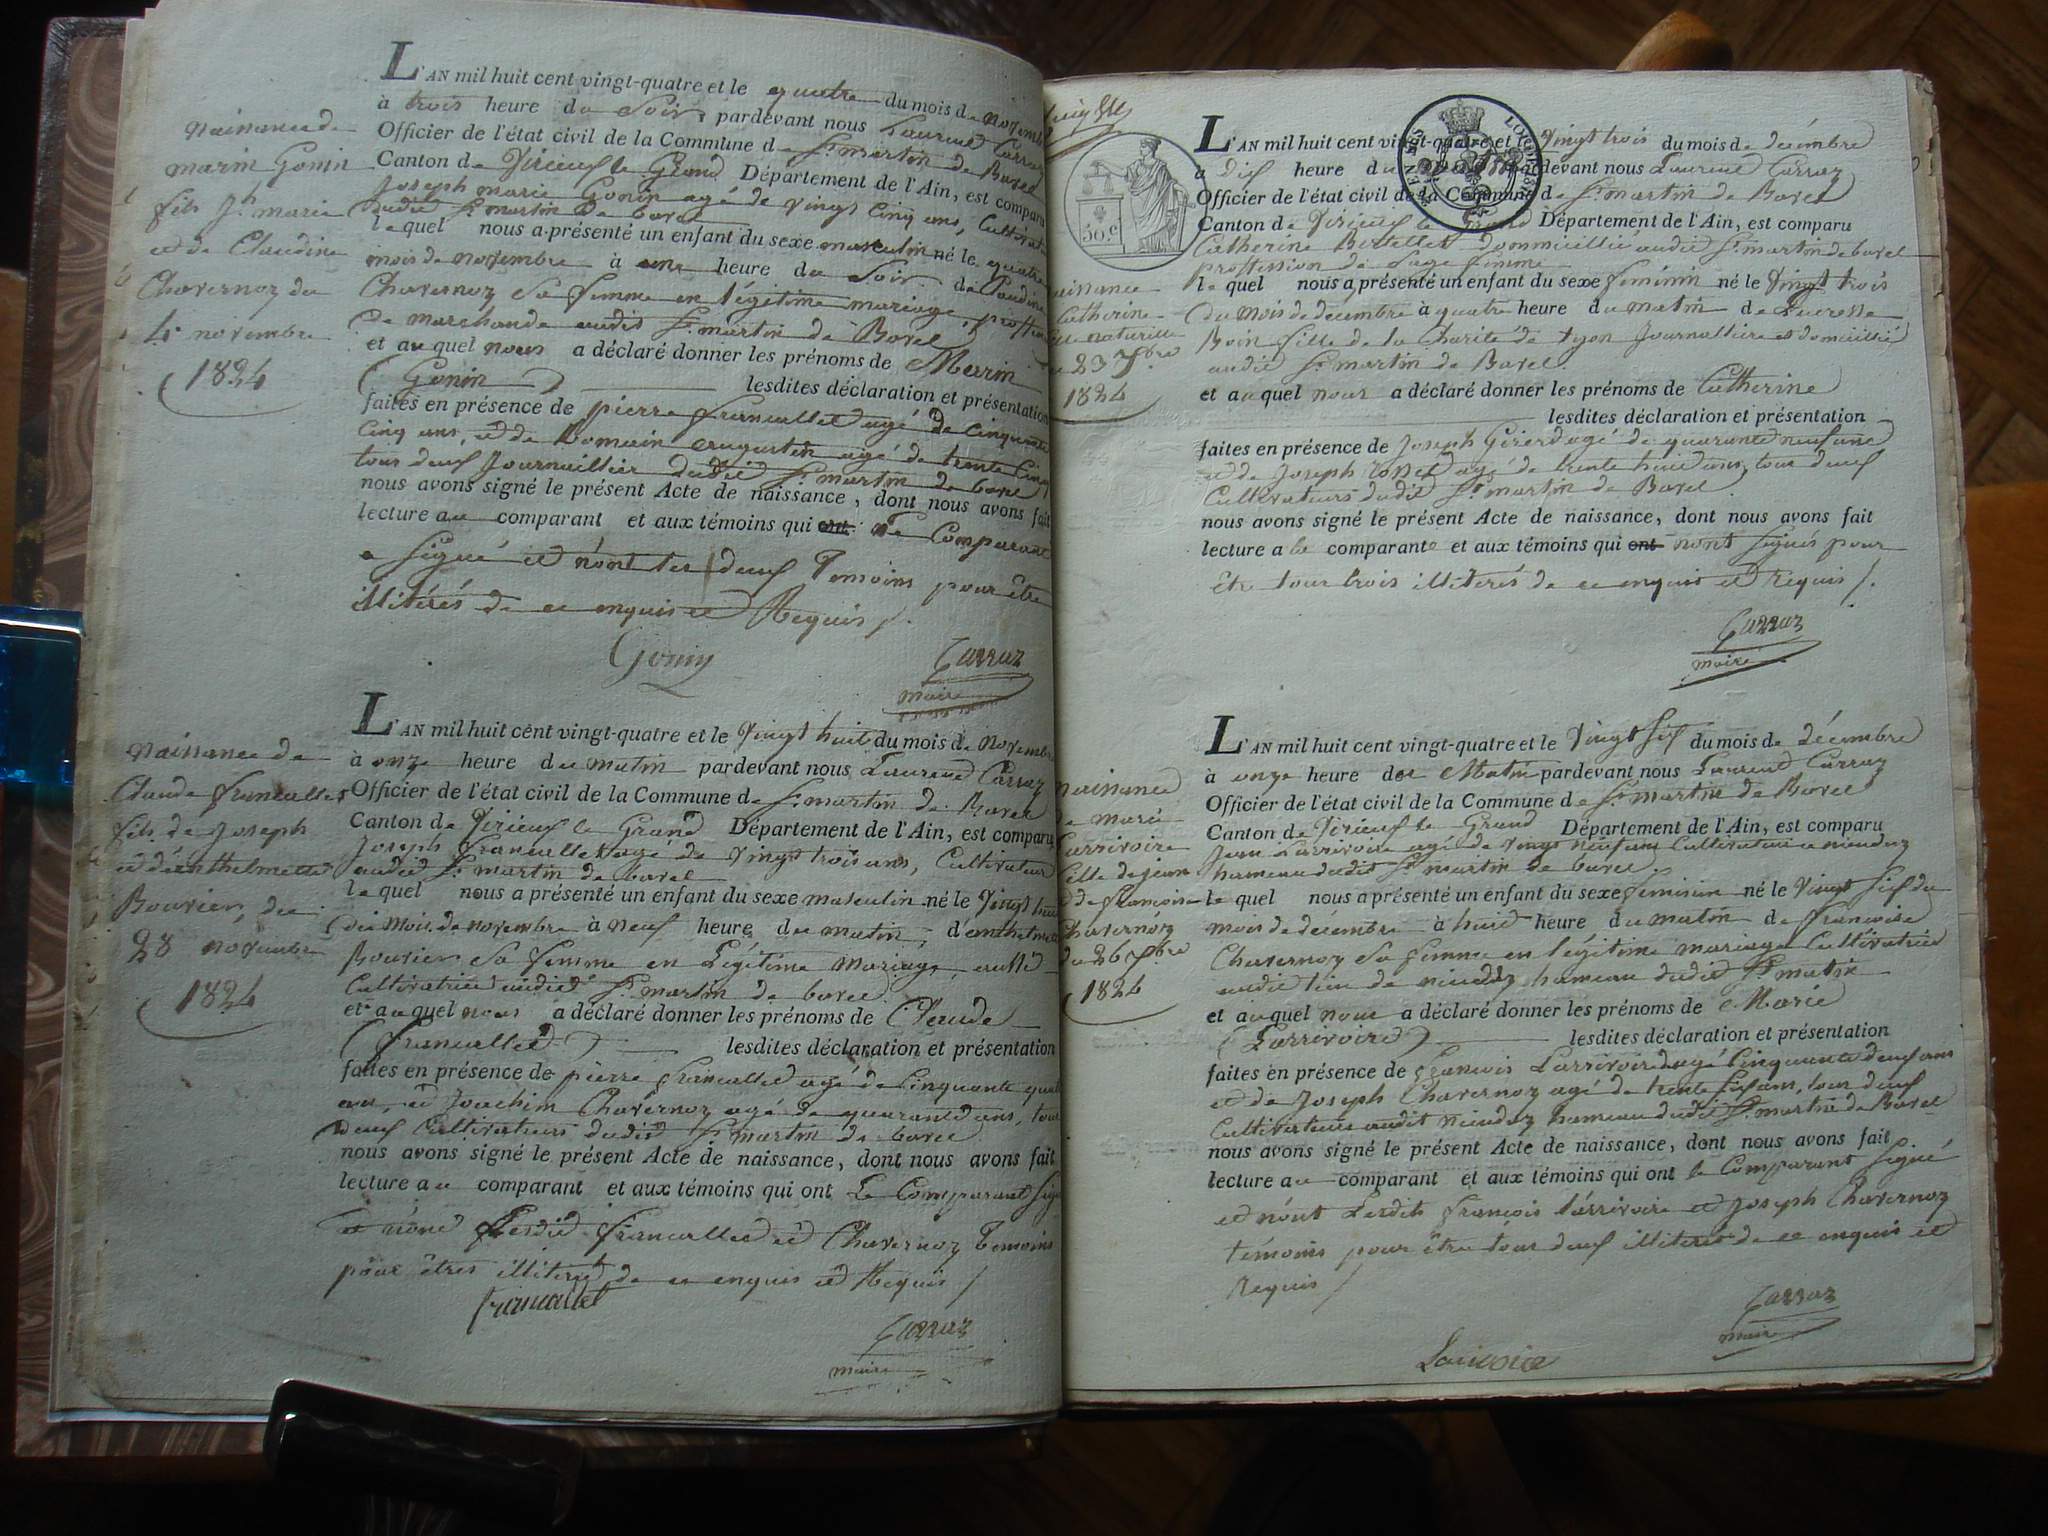 L'AN mil huit cent vingt-quatre et le quatre du mois de novembre
à trois heure du Soir pardevant nous Laurend Carraz
Officier de l'état civil de la Commune de St martin de Bavel
Canton de Virieux le Grand Département de l'Ain, est comparu
Joseph marie Gonin agé de vingt cinq ans, Cultivateur
audit St martin de bavel
lequel nous a présenté un enfant du sexe masculin né le quatre
mois de novembre à une heure du Soir de Claudine
Chavernoz Sa femme en légitime mariage,
de marchande audit St martin de Bavel
et auquel nous a déclaré donner les prénoms de Marin
(Gonin) lesdites déclaration et présentation
faites en présence de pierre francallet agé de Cinquante
Cinq ans, et de Romain agé de trente Cinq
tous deux Journaillier dudit St martin de bavel
nous avons signé le présent Acte de naissance, dont nous avons fait
lecture au comparant et aux témoins qui ont Le Comparant
a Signé et n'ont les deux Temoins pour être
illitérés de ce enquis et Requis /.
Gonin
Carraz
maire
naissance de
marin Gonin
fils Jh marie
et de Claudine
Chavernoz du
4 novembre
1824
L'AN mil huit cent vingt-quatre et le vingt huit du mois de Novembre
à onze heure du matin pardevant nous Laurend Carraz
Officier de l'état civil de la Commune de St martin de Bavel
Canton de Virieux le Grand Département de l'Ain, est comparu
Joseph francallet agé de vingt trois ans, Cultivateur
audit St martin de bavel
lequel nous a présenté un enfant du sexe masculin né le vingt huit
du Mois de novembre à neuf heure du matin, d'anthelmette
Bouvier Sa femme en Légitime mariage, aussi
Cultivatrice audit St martin de bavel
et auquel nous a déclaré donner les prénoms de Claude
(francallet) lesdites déclaration et présentation
faites en présence de pierre francallet agé de Cinquante quatre
ans, et Joachim Chavernoz agé de quarante ans, tous
deux Cultivateurs dudit St martin de bavel
nous avons signé le présent Acte de naissance, dont nous avons fait
lecture au comparant et aux témoins qui ont Le Comparant Signé
et n'ont Lesdit francallet et Chavernoz Temoins
pour êtres illiteré de ce enquis et Requis /
francallet
Carraz
maire
naissance de
Claude francallet
fils de Joseph
et d'anthelmette
Bouvier, du
28 novembre
1824
50.c
L'AN mil huit cent vingt-quatre et le vingt trois du mois de décembre
à dix heure du matin pardevant nous Laurend Carraz
Officier de l'état civil de la Commune de St martin de Bavel
Canton de Virieux le Grand Département de l'Ain, est comparu
Catherine Bertellet dommicilliée audit St martin de bavel
proffession de Sage femme
lequel nous a présenté un enfant du sexe féminin né le vingt trois
du Mois de décembre à quatre heure du matin de Lucresse
Boin fille de la Charité de Lyon Journalliere et domicilliée
audit St martin de Bavel.
et auquel nous a déclaré donner les prénoms de Catherine
lesdites déclaration et présentation
faites en présence de Joseph Girerd agé de quarante neuf ans
et de Joseph agé de trente huit ans, tous deux
Cultivateurs dudit St martin de Bavel
nous avons signé le présent Acte de naissance, dont nous avons fait
lecture a la comparante et aux témoins qui ont n'ont Signés pour
être tous trois illitérés de ce enquis et requis /.
Carraz
maire
naissance
Catherine
naturelle
23 Xbre
1824
L'AN mil huit cent vingt-quatre et le vingt Six du mois de décembre
à onze heure de Matin pardevant nous Laurend Carraz
Officier de l'état civil de la Commune de St martin de Bavel
Canton de Virieux le Grand Département de l'Ain, est comparu
Jean Larrivoire agé de vingt neuf ans Cultivateur a
hameau dudit St martin de bavel
lequel nous a présenté un enfant du sexe féminin né le vingt Six du
mois de décembre à huit heure du matin de francoise
Chavernoz Sa femme en légitime mariage Cultivatrice
audit lieu de hameau dudit St matin
et auquel nous a déclaré donner les prénoms de Marie
(Larrivoire) lesdites déclaration et présentation
faites en présence de francois Larrivoire agé Cinquante deux ans
et de Joseph Chavernoz agé de trente Six ans, tous deux
Cultivateurs audit hameau dudit St martin de Bavel
nous avons signé le présent Acte de naissance, dont nous avons fait
lecture au comparant et aux témoins qui ont le Comparant Signé
et n'ont Lesdits francois Larrivoire et Joseph Chavernoz
témoins pour être tous deux illiterés de ce enquis et
Requis /
Carraz
maire
Larivoire
naissance
de marie
Larrivoire
fille de jean
de francoise
Chavernoz
du 26 Xbre
1824